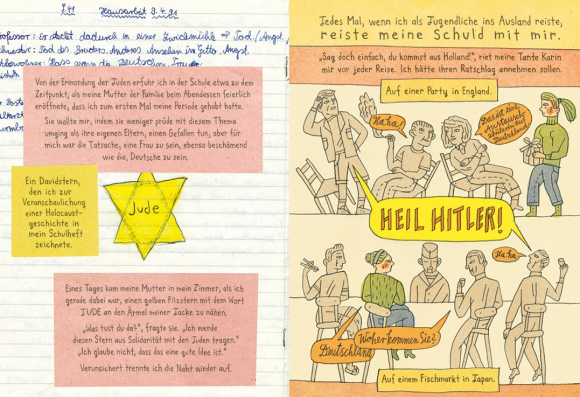 L41 Hausarbeit 9.4.91
Professor: Er steht dadurch in einer Zwickmühle → Tod/Angst,
Schneider: Tod des Bruders. Andres Ansehen im Getto. Angst.
Von der Ermordung der Juden erfuhr ich in der Schule etwa zu dem
Zeitpunkt, als meine Mutter der Familie beim Abendessen feierlich
eröffnete, dass ich zum ersten Mal meine Periode gehabt hatte.
Sie wollte mir, indem sie weniger prüde mit diesem Thema
umging als ihre eigenen Eltern, einen Gefallen tun, aber für
mich war die Tatsache, eine Frau zu sein, ebenso beschämend
wie die, Deutsche zu sein.
Ein Davidstern,
den ich zur
Veranschaulichung
einer Holocaust-
geschichte in
mein Schulheft
zeichnete.
Jude
Eines Tages kam meine Mutter in mein Zimmer, als ich
gerade dabei war, einen gelben Filzstern mit dem Wort
JUDE an den Ärmel meiner Jacke zu nähen.
„Was tust du da?", fragte sie. „Ich werde
diesen Stern aus Solidarität mit den Juden tragen."
„Ich glaube nicht, dass das eine gute Idee ist."
Verunsichert trennte ich die Naht wieder auf.
Jedes Mal, wenn ich als Jugendliche ins Ausland reiste,
reiste meine Schuld mit mir.
„Sag doch einfach, du kommst aus Holland!", riet meine Tante Karin
mir vor jeder Reise. Ich hätte ihren Ratschlag annehmen sollen.
Auf einer Party in England.
Ha ha!
Das ist eine
Austausch-
schülerin aus
Deutschland
HEIL HITLER!
Ha ha
Woher kommen Sie?
Deutschland
Auf einem Fischmarkt in Japan.